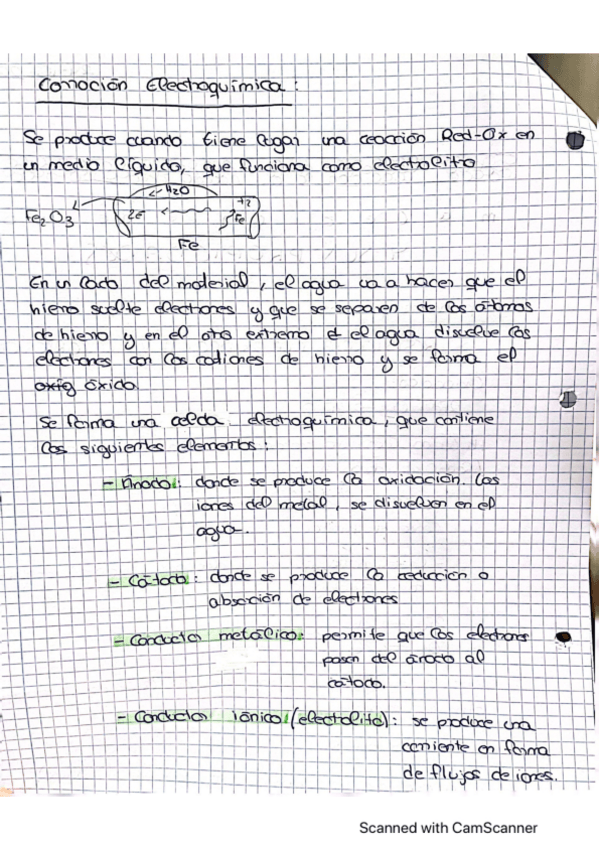 Corroción Electroquímica:
Se produce cuando tiene lugar una reacción Red-Ox en
un medio líquido, que funciona como electrolito
<- H2O
Fe2O3 2e- +2 Fe
Fe
En un lado del material, el agua va a hacer que el
hierro suelte electrones y que se separen de los átomos
de hierro y en el otro extremo el agua disuelve los
electrones con los cationes de hierro y se forma el
oxig óxido.
Se forma una celda electroquímica, que contiene
los siguientes elementos:
- Ánodo: donde se produce la oxidación. Los
iones del metal, se disuelven en el
agua.
- Cátodo: donde se produce la reducción o
absorción de electrones
- Conductor metálico: permite que los electrones
pasen del ánodo al
cátodo.
- Conductor iónico (electrolito): se produce una
corriente en forma
de flujos de iones.
Scanned with CamScanner